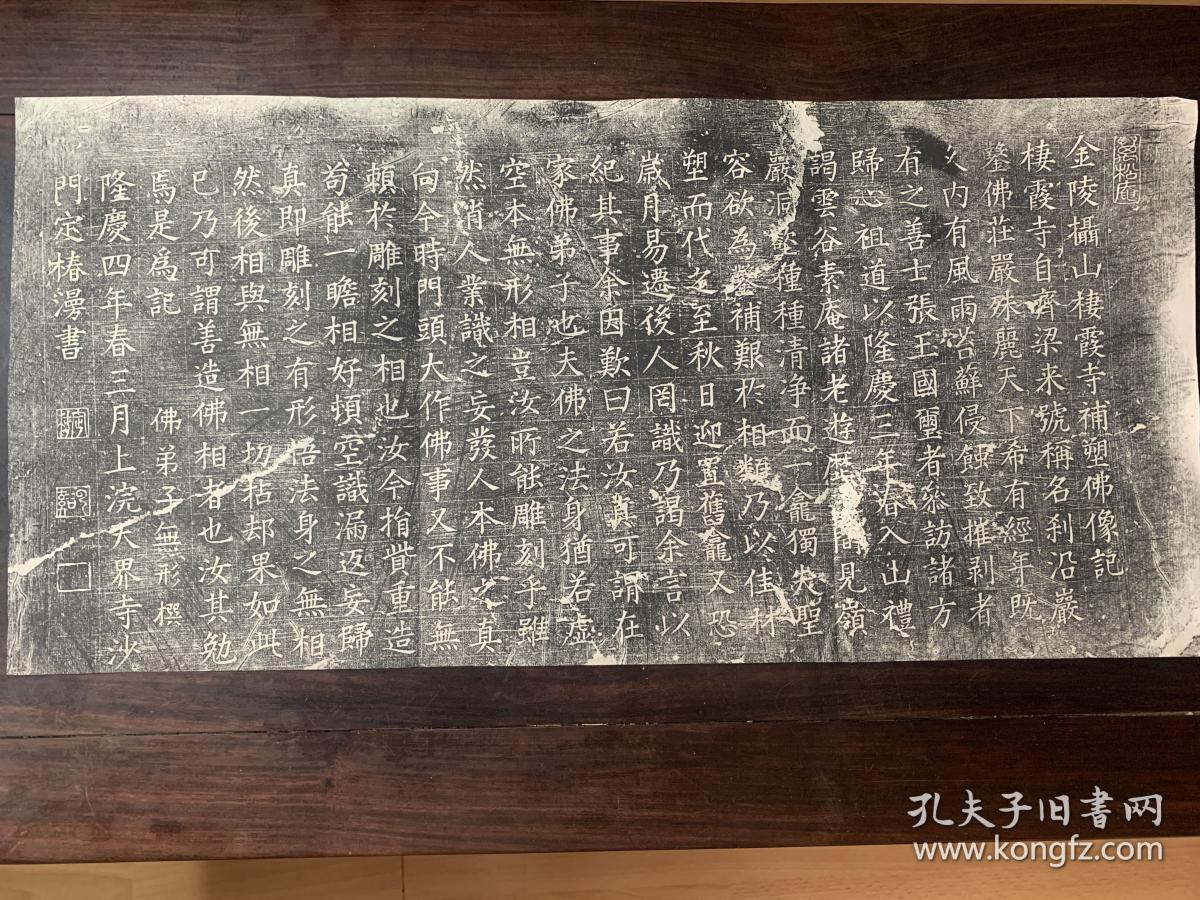 金陵攝山棲霞寺補塑佛像記
棲霞寺自齊梁来號稱名刹沿巖
鑿佛莊嚴殊麗天下希有經年既
久內有風雨苔蘚侵蝕致摧剥者
有之善士張王國璽者叅訪諸方
歸心祖道以隆慶三年春入山禮
謁雲谷素庵諸老遊歷見嶺
巖洞種種清净而一龕獨失聖
容欲為補艱於相類乃以佳材
塑而代之至秋日迎置舊龕又恐
歲月易遷後人罔識乃謁余言以
紀其事余因歎曰若汝真可謂在
家佛弟子也夫佛之法身猶若虛
空本無形相豈汝所能雕刻乎雖
然消人業識之妄發人本佛之真
向今時門頭大作佛事又不能無
賴於雕刻之相也汝今捐貲重造
苟能一瞻相好頓空識漏返妄歸
真即雕刻之有形悟法身之無相
然後相與無相一切拈却果如此
已乃可謂善造佛相者也汝其勉
焉是爲記 佛弟子無形撰
隆慶四年春三月上浣天界寺沙
門定椿漫書
孔夫子旧书网
www.kongfz.com